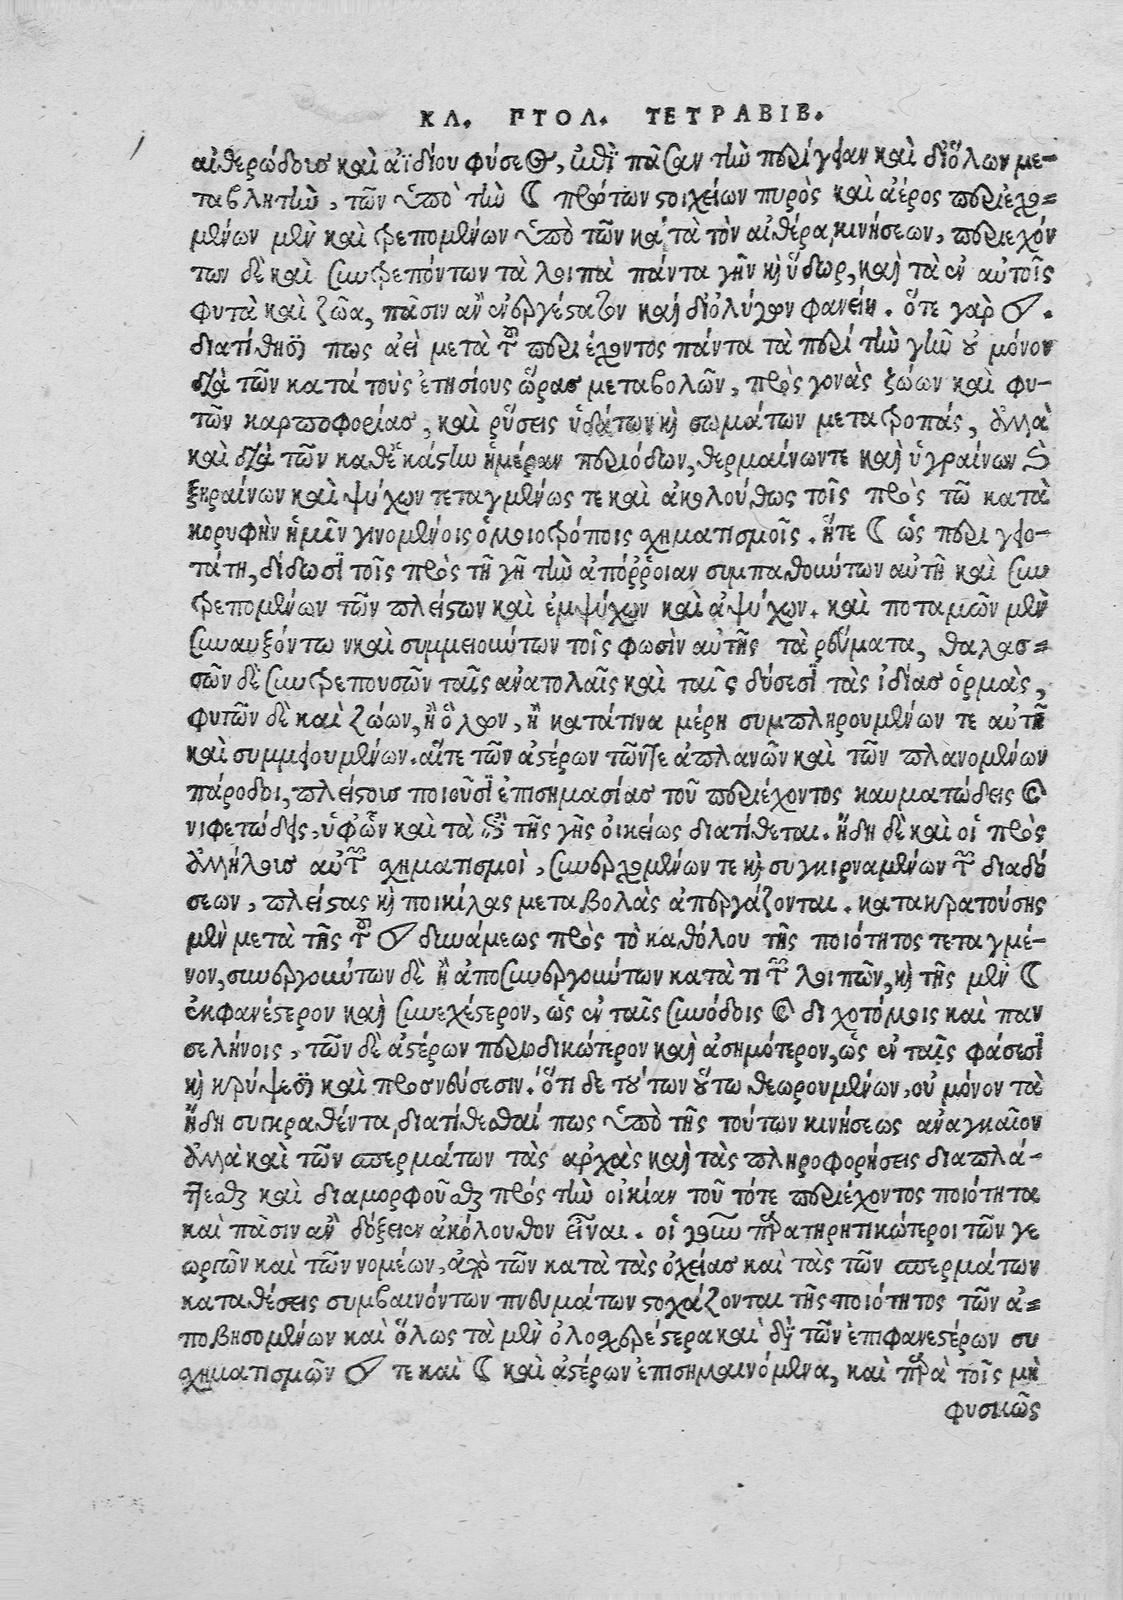 ΚΛ. ΠΤΟΛ. ΤΕΤΡΑΒΙΒ.
αἰθερώδους καὶ ἀϊδίου φύσεως, ἐπὶ πᾶσαν τὴν περίγειαν καὶ δι᾽ ὅλων με-
ταβλητὴν, τῶν ὑπὸ τὴν ☾ πρώτων στοιχείων πυρὸς καὶ ἀέρος περιεχο-
μένων μὲν καὶ τρεπομένων ὑπὸ τῶν κατὰ τὸν αἰθέρα κινήσεων, περιεχόν
των δὲ καὶ συντρεπόντων τὰ λοιπὰ πάντα γῆν κὶ ὕδωρ, καὶ τὰ ἐν αὐτοῖς
φυτὰ καὶ ζῶα, πᾶσιν ἂν ἐνεργέστατον καὶ δι᾽ ὀλίγων φανείη. ὅτε γὰρ ☉.
διατίθησί πως ἀεὶ μετὰ τοῦ περιέχοντος πάντα τὰ περὶ τὴν γῆν οὐ μόνον
διὰ τῶν κατὰ τοὺς ἐτησίους ὥρας μεταβολῶν, πρὸς γονὰς ζώων καὶ φυ-
τῶν καρποφορίας, καὶ ῥύσεις ὑδάτων κὶ σωμάτων μετατροπάς, ἀλλὰ
καὶ διὰ τῶν καθ᾽ ἑκάστην ἡμέραν περιόδων, θερμαίνων τε καὶ ὑγραίνων καὶ
ξηραίνων καὶ ψύχων τεταγμένως τε καὶ ἀκολούθως τοῖς πρὸς τῶ κατὰ
κορυφὴν ἡμῖν γινομένοις ὁμοιοτρόποις σχηματισμοῖς. ἥτε ☾ ὡς περιγειο-
τάτη, δίδωσϊ τοῖς πρὸς τῆ γῆ τὴν ἀπόῤῥοιαν συμπαθούντων αὐτῆ καὶ συν
τρεπομένων τῶν πλείστων καὶ ἐμψύχων καὶ ἀψύχων. καὶ ποταμῶν μὲν
συναυξόντω νκαὶ συμμειούντων τοῖς φωσὶν αὐτῆς τὰ ρεύματα, θαλασ-
σῶν δὲ συντρεπουσῶν ταῖς ἀνατολαῖς καὶ ταῖς δύσεσϊ τὰς ἰδίας ὁρμὰς,
φυτῶν δὲ καὶ ζώων, ἢ ὅλων, ἢ κατάτινα μέρη συμπληρουμένων τε αὐτῆ
καὶ συμμειουμένων. αἵτε τῶν ἀστέρων τῶντε ἀπλανῶν καὶ τῶν πλανομένων
πάροδοι, πλείστους ποιοῦσϊ ἐπισημασίας τοῦ περιέχοντος καυματώδεις καὶ
νιφετώδεις, ὑφ᾽ ὧν καὶ τὰ ἐπὶ τῆς γῆς οἰκείως διατίθεται. ἤδη δὲ καὶ οἱ πρὸς
ἀλλήλους αὐτῶν σχηματισμοὶ, συνερχομένων τε κὶ συγκιρναμένων τῶν διαδό
σεων, πλείστας κὶ ποικίλας μεταβολὰς ἀπεργάζονται. κατακρατούσης
μὲν μετὰ τῆς τοῦ ☉ δυνάμεως πρὸς τὸ καθόλου τῆς ποιότητος τεταγμέ-
νον, συνεργούντων δὲ ἢ ἀποσυνεργούντων κατὰ τι τῶν λοιπῶν, κὶ τῆς μὲν ☾
ἐκφανέστερον καὶ συνεχέστερον, ὡς ἐν ταῖς συνόδοις καὶ διχοτόμοις καὶ παν
σελήνοις, τῶν δὲ ἀστέρων περιοδικώτερον καὶ ἀσημότερον, ὡς ἐν ταῖς φάσεσϊ
κὶ κρύψεσϊ καὶ προσνεύσεσιν. ὅτι δε τούτων οὕτω θεωρουμένων, οὐ μόνον τὰ
ἤδη συγκραθέντα, διατίθεσθαί πως ὑπὸ τῆς τούτων κινήσεως ἀναγκαῖον
ἀλλὰ καὶ τῶν σπερμάτων τὰς ἀρχὰς καὶ τὰς πληροφορήσεις διαπλά-
τεσθαι καὶ διαμορφοῦσθαι πρὸς τὴν οἰκίαν τοῦ τότε περιέχοντος ποιότητα
καὶ πᾶσιν ἂν δόξειεν ἀκόλουθον εἶναι. οἱ γοῦν παρατηρητικώτεροι τῶν γε
ωργῶν καὶ τῶν νομέων, ἀπὸ τῶν κατὰ τὰς ὀχείας καὶ τὰς τῶν σπερμάτων
καταθέσεις συμβαινόντων πνευμάτων στοχάζονται τῆς ποιότητος τῶν ἀ-
ποβησομένων καὶ ὅλως τὰ μὲν ὁλοσχερέστερα καὶ διὰ τῶν ἐπιφανεστέρων συ
σχηματισμῶν ☉ τε καὶ ☾ καὶ ἀστέρων ἐπισημαινόμενα, καὶ παρὰ τοῖς μὴ
φυσικῶς